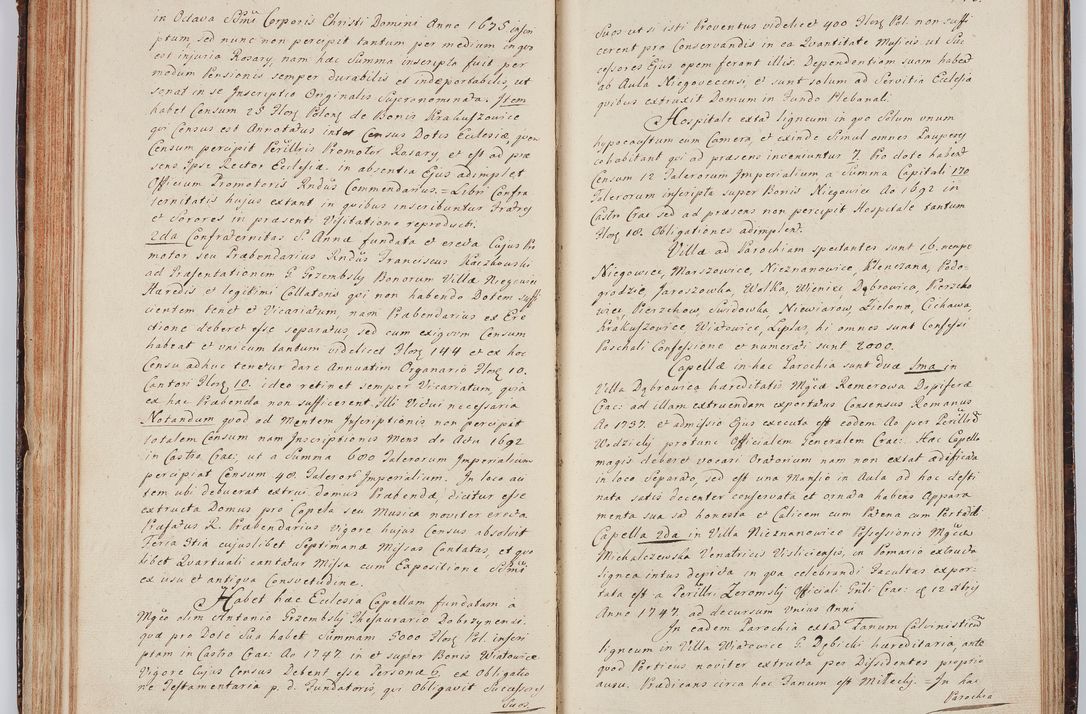 in Octava SSmi Corporis Christi Domini Anno 1675 inscri
ptum, sed nunc non percipit tantum per medium in quo
est injuria Rosary, nam hæc Summa inscripta fuit per
modum Pensionis semper durabilis et indeportabilis, ut
sonat in se Inscriptio Originalis Supronominata. Item
habet Censum 25 Flor Polon de Bonis Krakuszowice
qui Census est Annotatus inter Census Dotis Ecclesiæ, quem
Censum percipit Perillris Promotor Rosary, et est ad præ
sens Ipse Rector Ecclesiæ, in absentia Ejus adimplet
Officium Promotoris Rndus Commendarius. = Libri Confra
ternitatis hujus extant in quibus inscribuntur Fratres
et Sorores in præsenti Visitatione reproducti.
2da Confraternitas S. Annæ fundata et erecta Cujus Pro
motor seu Præbendarius Rndus Franciscus Kaczkowski
ad Præsentationem G Grzembsky Bonorum Villæ Niegowice
Hæredis et legitimi Collatoris qui non habendo Dotem suffi
cientem tenet et Vicariatum, nam Præbendarius ex Ere
ctione deberet esse separatus, sed cum exiguum Censum
habeat et unicum tantum videlicet Flor 144 et ex hoc
Censu adhuc tenetur dare Annuatim Organario Flor 10.
Cantori Flor 10. ideo retinet semper Vicariatum, quia
ex hac Præbenda non sufficerent Illi Victui necessaria
Notandum quod ad Mentem Inscriptionis non percipit
totalem Censum nam Inscriptionis Mens de Actu 1692
in Castro Crac: ut a Summa 600 Talerorum Imperialium
percipiat Censum 48 Taleror Imperialium. In loco au
tem ubi debuerat extrui domus Præbendæ, dicitur esse
extructa Domus pro Capela seu Musica noviter erecta
Præfatus R. Præbendarius Vigore hujus Census absolvit
Feria 3tia cujuslibet Septimanæ Missas Cantatas, et quo
libet Quartuali cantatur Missa cum Expositione SSmi
ex usu et antiqua Consvetudine.
Habet hæc Ecclesia Capellam fundatam à
Mgco olim Antonio Grzembsky Thesaurario Dobrzynensi.
quæ pro Dote Sua habet Summam 5000 Flor Pol. inscri
ptam in Castro Crac: Ao 1747. in et super Bonis Wiatowice
Vigore Cujus Census Debent esse Personæ 6. ex Obligatio
ne Testamentaria p. d. Fundatoris, qui Obligavit Successores
Suos.
Suos ut si isti Proventus videlicet 400 Flor Pol. non suffi
cerent pro Conservandis in ea Quantitate Musicis ut Suc
cessores Ejus opem ferant illis. Dependentiam suam habent
ab Aula Niegovecensi, et sunt solum ad Servitia Ecclesiæ
quibus extruxit Domum in Fundo Plebanali.
Hospitale extat ligneum in quo Solum unum
hypocaustrum cum Camera, et exinde Simul omnes Pauperes
cohabitant qui ad præsens inveniuntur 7. Pro dote habent
Censum 12 Talerorum Imperialium a Summa Capitali 170
Talerorum inscripta super Bonis Niegowice Ao 1692 in
Castro Crac sed ad præsens non percipit Hospitale tantum
Flor 18. Obligationes adimplent.
Villæ ad Parochiam spectantes sunt 16. nempe
Niegowice, Marszowice, Nieznanowice, Klenczana, Podo-
grodzie, Jaroszowka, Wolka, Wieniec Dąbrowica, Pierzcho
wiec, Pierzchow, Swidowka, Niewiarow, Zielona, Cichawa,
Krakuszowice Wiatowice, Liplas, hi omnes sunt Confessi
Paschali Confessione et numerati sunt 2000.
Capellæ in hac Parochia sunt duæ 1ma in
Villa Dąbrowica hæreditatis Mgcæ Romerowa Dapiferæ
Crac: ad illam extruendam exportatus Consensus Romanus
Ao 1737. et admissio Ejus executa est eodem Ao per Perillrem
Wodzicky protunc Officialem Generalem Crac: Hæc Capella
magis deberet vocari Oratorium nam non extat ædificata
in loco separato, sed est una Mansio in Aula ad hoc desti
nata satis decenter conservata et ornata habens Appara
menta sua sat honesta et Calicem cum Patena cum Portatili
Capella 2da in Villa Nieznanowice Possessionis Mgcæ
Michalczewska Venatricis Visliciensis, in Pomario extructa
lignea intus depicta in qua celebrandi Facultas expor-
tata est a Perilli Zeromsky Officiali Gnli Crac: d 12 Xbris
Anno 1747. ad decursum Unius Anni.
In eadem Parochia extat Fanum Calvinisticum
ligneum in Villa Wiatowice G. Dębicki hæreditaria, ante
quod Porticus noviter extructa per Dissidentes proprio
ausu. Prædicans circa hoc Fanum est Miłecky. = In hac
Parochia